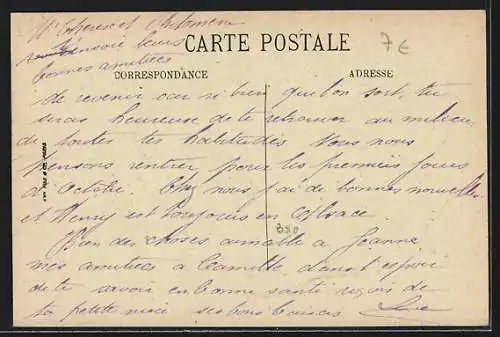 CARTE POSTALE
7€
bonnes amitiés
CORRESPONDANCE
ADRESSE
de revenir car si bien que l'on soit, tu
seras heureuse de te retrouver au milieu
de toutes tes habitudes Nous nous
pensons rentrer pour les premiers jours
d'Octobre. Chez nous j'ai de bonnes nouvelles
et Henry est toujours en Alsace.
Bien des choses aimables à Jeanne
mes amitiés à Camille, dans l'espoir
de te savoir en bonne santé reçois de
ta petite mère ses bons baisers